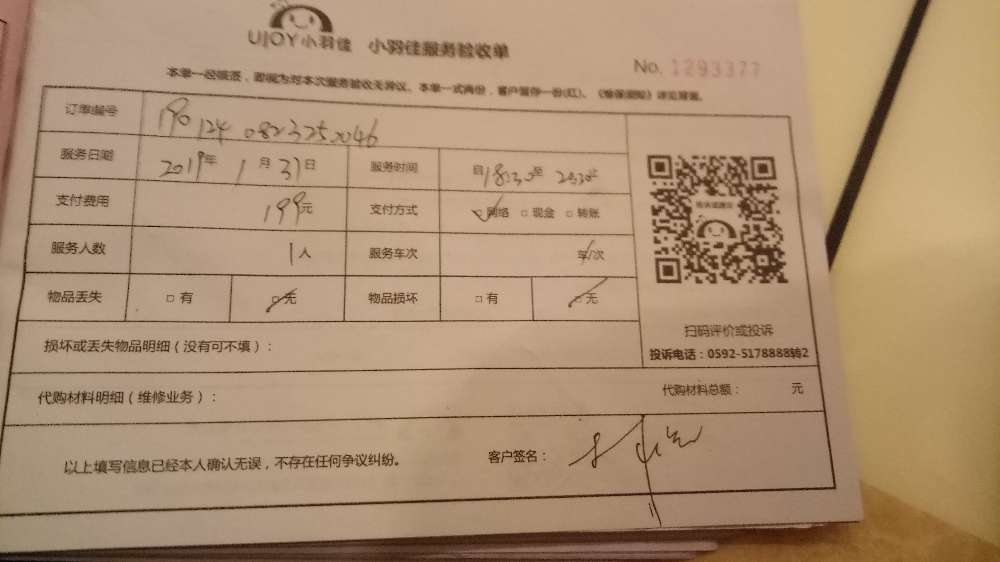 UJOY小羽佳 小羽佳服务验收单
No. 1293377
本单一经领签，即视为对本次服务验收无异议。本单一式两份，客户留存一份(红)。《维保须知》详见背面。
订单编号 190124 0823250046
服务日期 2019年 1月 31日 服务时间 自18:30至 20:30止
支付费用 199元 支付方式 ☑网络 □ 现金 □ 转账
服务人数 1人 服务车次 车/次
物品丢失 □ 有 ☑ 无 物品损坏 □ 有 ☑ 无
损坏或丢失物品明细（没有可不填）：
扫码评价或投诉
投诉电话：0592-5178888转2
代购材料明细（维修业务）： 代购材料总额： 元
以上填写信息已经本人确认无误，不存在任何争议纠纷。 客户签名：